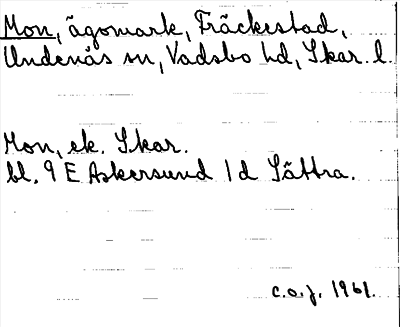 Mon, ägomark, Fräckestad,
Undenäs sn, Vadsbo hd, Skar. l.
Mon, ek. Skar.
bl. 9 E Askersund 1 d Sättra.
c.o.j. 1961.